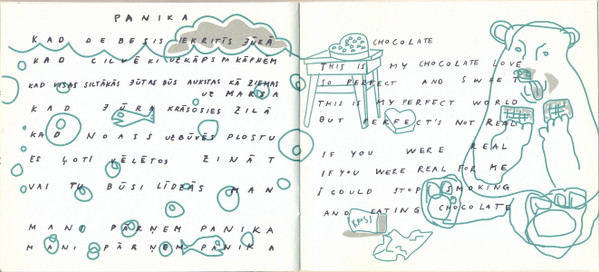 PANIKA
KAD DEBESIS IEKRITĪS JŪRĀ
KAD CILVĒKI UZKĀPS PA KĀPNĒM
KAD VISAS SILTĀKĀS JŪTAS BŪS AUKSTAS KĀ ZIEMAS
UZ MARSA
KAD JŪRA KRĀSOSIES ZILĀ
KAD NOASS UZBŪVĒS PLOSTU
ES ĻOTI VĒLĒTOS ZINĀT
VAI TU BŪSI LĪDZĀS MAN
MANI PĀRŅEM PANIKA
MANI PĀRŅEM PANIKA
CHOCOLATE
THIS IS MY CHOCOLATE LOVE
SO PERFECT AND SWEET
THIS IS MY PERFECT WORLD
BUT PERFECT'S NOT REAL
IF YOU WERE REAL
IF YOU WERE REAL FOR ME
I COULD STOP SMOKING
AND EATING CHOCOLATE